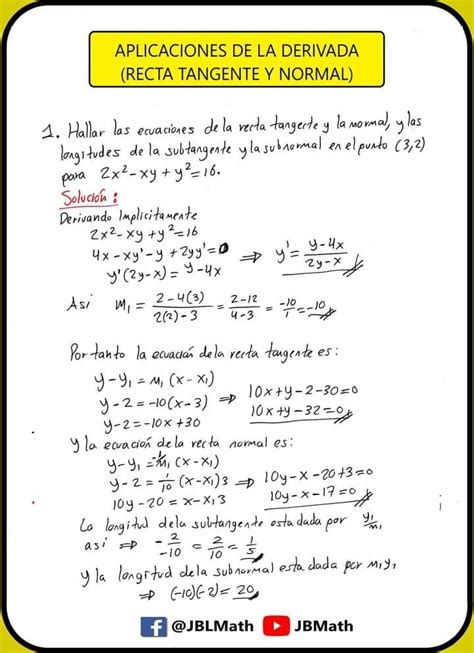 APLICACIONES DE LA DERIVADA
(RECTA TANGENTE Y NORMAL)
1. Hallar las ecuaciones de la recta tangente y la normal, y las
longitudes de la subtangente y la subnormal en el punto (3,2)
para 2x²-xy+y²=16.
Solución:
Derivando Implicitamente
2x²-xy+y²=16
4x-xy'-y+2yy'=0 ⇒ y' = (y-4x)/(2y-x)
y'(2y-x)=y-4x
Asi m₁ = (2-4(3))/(2(2)-3) = (2-12)/(4-3) = -10/1 = -10
Por tanto la ecuación de la recta tangente es:
y-y₁=m₁(x-x₁)
y-2=-10(x-3) ⇒ 10x+y-2-30=0
y-2=-10x+30 10x+y-32=0
y la ecuación de la recta normal es:
y-y₁=-1/m₁(x-x₁)
y-2=1/10(x-x₁)3 ⇒ 10y-x-20+3=0
10y-20=x-x₁3 10y-x-17=0
La longitud de la subtangente esta dada por y₁/m₁
asi ⇒ -2/-10 = 2/10 = 1/5
y la longitud de la subnormal esta dada por m₁y₁
⇒ (-10)(-2)=20
@JBLMath JBMath